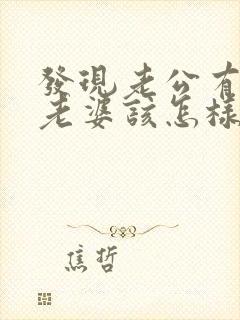 發現老公有
老婆該怎樣
焦哲